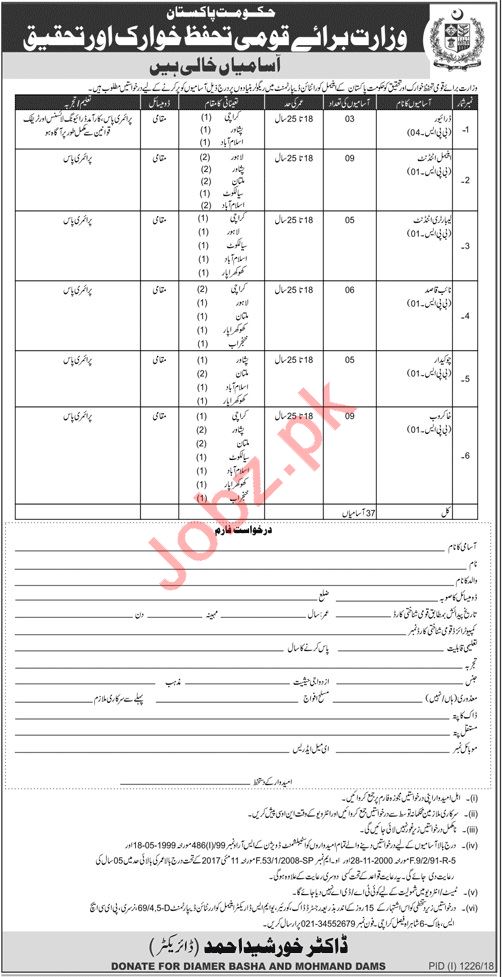 حکومت پاکستان
وزارت برائے قومی تحفظ خوارک اور تحقیق
آسامیاں خالی ہیں
وزارت برائے قومی تحفظ خوارک اور تحقیق حکومت پاکستان کے اینیمل کورانٹائن ڈیپارٹمنٹ میں ریگولر بنیادوں پر درج ذیل آسامیوں کو پر کرنے کے لیے درخواستیں مطلوب ہیں۔
نمبر شمار آسامیوں کا نام آسامیوں کی تعداد عمر کی حد تعیناتی کا مقام ڈومیسائل تعلیم/تجربہ
1- ڈرائیور (بی پی ایس۔04) 03 18 تا 25 سال کراچی (1) پشاور (1) اسلام آباد (1) مقامی پرائمری پاس، کارآمد ڈرائیونگ لائسنس اور ٹریفک قوانین سے مکمل طور پر آگاہ ہو
2- اینیمل اٹنڈنٹ (بی پی ایس۔01) 09 18 تا 25 سال لاہور (2) پشاور (2) ملتان (2) سیالکوٹ (1) اسلام آباد (2) مقامی پرائمری پاس
3- لیبارٹری اٹنڈنٹ (بی پی ایس۔01) 05 18 تا 25 سال کراچی (1) لاہور (1) سیالکوٹ (1) اسلام آباد (1) کھوکھراپار (1) مقامی پرائمری پاس
4- نائب قاصد (بی پی ایس۔01) 06 18 تا 25 سال کراچی (2) لاہور (1) ملتان (1) کھوکھراپار (1) خنجراب (1) مقامی پرائمری پاس
5- چوکیدار (بی پی ایس۔01) 05 18 تا 25 سال پشاور (1) ملتان (2) اسلام آباد (1) کھوکھراپار (1) مقامی پرائمری پاس
6- خاکروب (بی پی ایس۔01) 09 18 تا 25 سال کراچی (1) پشاور (2) ملتان (2) سیالکوٹ (1) اسلام آباد (1) کھوکھراپار (1) خنجراب (1) مقامی پرائمری پاس
کل 37 آسامیاں
درخواست فارم
آسامی کا نام
نام
والد کا نام
ڈومیسائل کا صوبہ ضلع
تاریخ پیدائش بمطابق قومی شناختی کارڈ عمر: سال مہینہ دن
کمپیوٹرائزڈ قومی شناختی کارڈ نمبر
تعلیمی قابلیت پاس کرنے کا سال
تجربہ
جنس ازدواجی حیثیت مذہب
معذوری (ہاں/نہیں) مسلح افواج پہلے سے سرکاری ملازم
ڈاک کا پتہ
مستقل پتہ
موبائل نمبر ای میل ایڈریس
امیدوار کے دستخط
(i)۔ اہل امیدوار اپنی درخواستیں مجوزہ فارم پر جمع کروائیں۔
(ii)۔ سرکاری ملازمین محکمانہ توسط سے درخواستیں جمع کروائیں اور انٹرویو کے وقت این او سی پیش کریں۔
(iii)۔ نامکمل درخواستیں زیر غور نہیں لائی جائیں گی۔
(iv)۔ درج بالا آسامیوں کے لیے درخواستیں دینے والے تمام امیدواروں کو اسٹیبلشمنٹ ڈویژن کے ایس آر او نمبر 486(I)/99 مورخہ 18-05-1999 اور F.9/2/91-R-5 مورخہ 28-11-2000 اور او۔ایم نمبر F.53/1/2008-SP مورخہ 11 مئی 2017 کے تحت درج بالا عمر کی بالائی حد میں 05 سال کی رعایت دی جائے گی۔ یہ رعایت قواعد کے تحت کسی دوسری رعایت کے علاوہ ہو گی۔
(v)۔ ٹیسٹ/انٹرویو میں شمولیت کے لیے کوئی ٹی اے/ڈی اے نہیں دیا جائے گا۔
(vi)۔ درخواستیں زیر دستخطی کو اس اشتہار کے 15 روز کے اندر بذریعہ رجسٹرڈ ڈاک، کوریئر، یو ایم ایس ڈائریکٹر اینیمل کوارنٹائن ڈیپارٹمنٹ، 69/4,5-D نرسری، پی ای سی ایچ ایس، بلاک۔6 شاہراہ فیصل کراچی۔ فون نمبر 021-34552679 پر ارسال کریں۔
ڈاکٹر خورشید احمد (ڈائریکٹر)
DONATE FOR DIAMER BASHA AND MOHMAND DAMS
PID (I) 1226/18
Jobz.pk